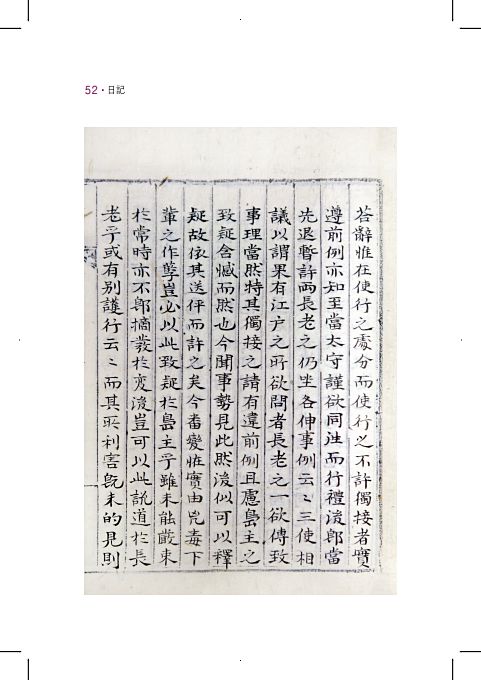 52 • 日記
答辭惟在使行之處分而使行之不許獨接者實
遵前例亦知至當太守謹欲同往而行禮後郎當
先退暫許兩長老之仍坐各伸事例云〻三使相
議以謂果有江户之所欲問者長老之一欲傳致
事理當然特其獨接之請有違前例且慮島主之
致疑含憾而然也今聞事勢見此然後似可以釋
疑故依其送伻而許之矣今番變怪實由兇毒下
輩之作孽豈必以此致疑於島主乎雖未能嚴束
於常時亦不郎摘發於變後豈可以此說道於長
老乎或有別護行云〻而其所利害旣未的見則